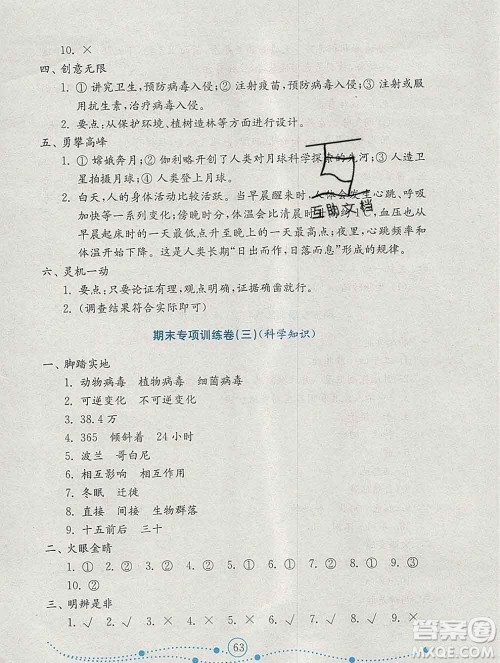 10. ×
四、创意无限
1. ① 讲究卫生，预防病毒入侵；② 注射疫苗，预防病毒入侵；③ 注射或服
用抗生素，治疗病毒入侵。
2. 要点：从保护环境、植树造林等方面进行设计。
五、勇攀高峰
1. ① 嫦娥奔月；② 伽利略开创了人类对月球科学探索的先河；③ 人造卫
星拍摄月球；④ 人类登上月球。
2. 白天，人的身体活动比较活跃。当早晨醒来时，人体会发生心跳、呼吸
加快等一系列变化；傍晚时分，体温会比清晨时高
，血压也从
早晨起床时的一天最低点升至晚上的一天最高点；夜里，心跳频率和
体温开始下降。这是人类长期“日出而作，日落而息”形成的规律。
六、灵机一动
1. 要点：只要论证有理，观测现象正确，证据确凿就行。
2. （调查结果符合实际即可）
互助文档
期末专项训练卷（三）（科学知识）
一、脚踏实地
1. 动物病毒 植物病毒 细菌病毒
2. 可逆变化 不可逆变化
3. 38.4 万
4. 365 倾斜着 24 小时
5. 波兰 哥白尼
6. 相互影响 相互作用
7. 冬眠 迁徙
8. 直接 间接 直接
9. 十五前后 三十
二、火眼金睛
1. ① 2. ② 3. ② 4. ① 5. ① 6. ② 7. ① 8. ② 9. ③
10. ②
三、明辨是非
1. √ 2. √ 3. × 4. √ 5. × 6. √ 7. √ 8. √ 9. ×
63
答案圈
MXQE.COM